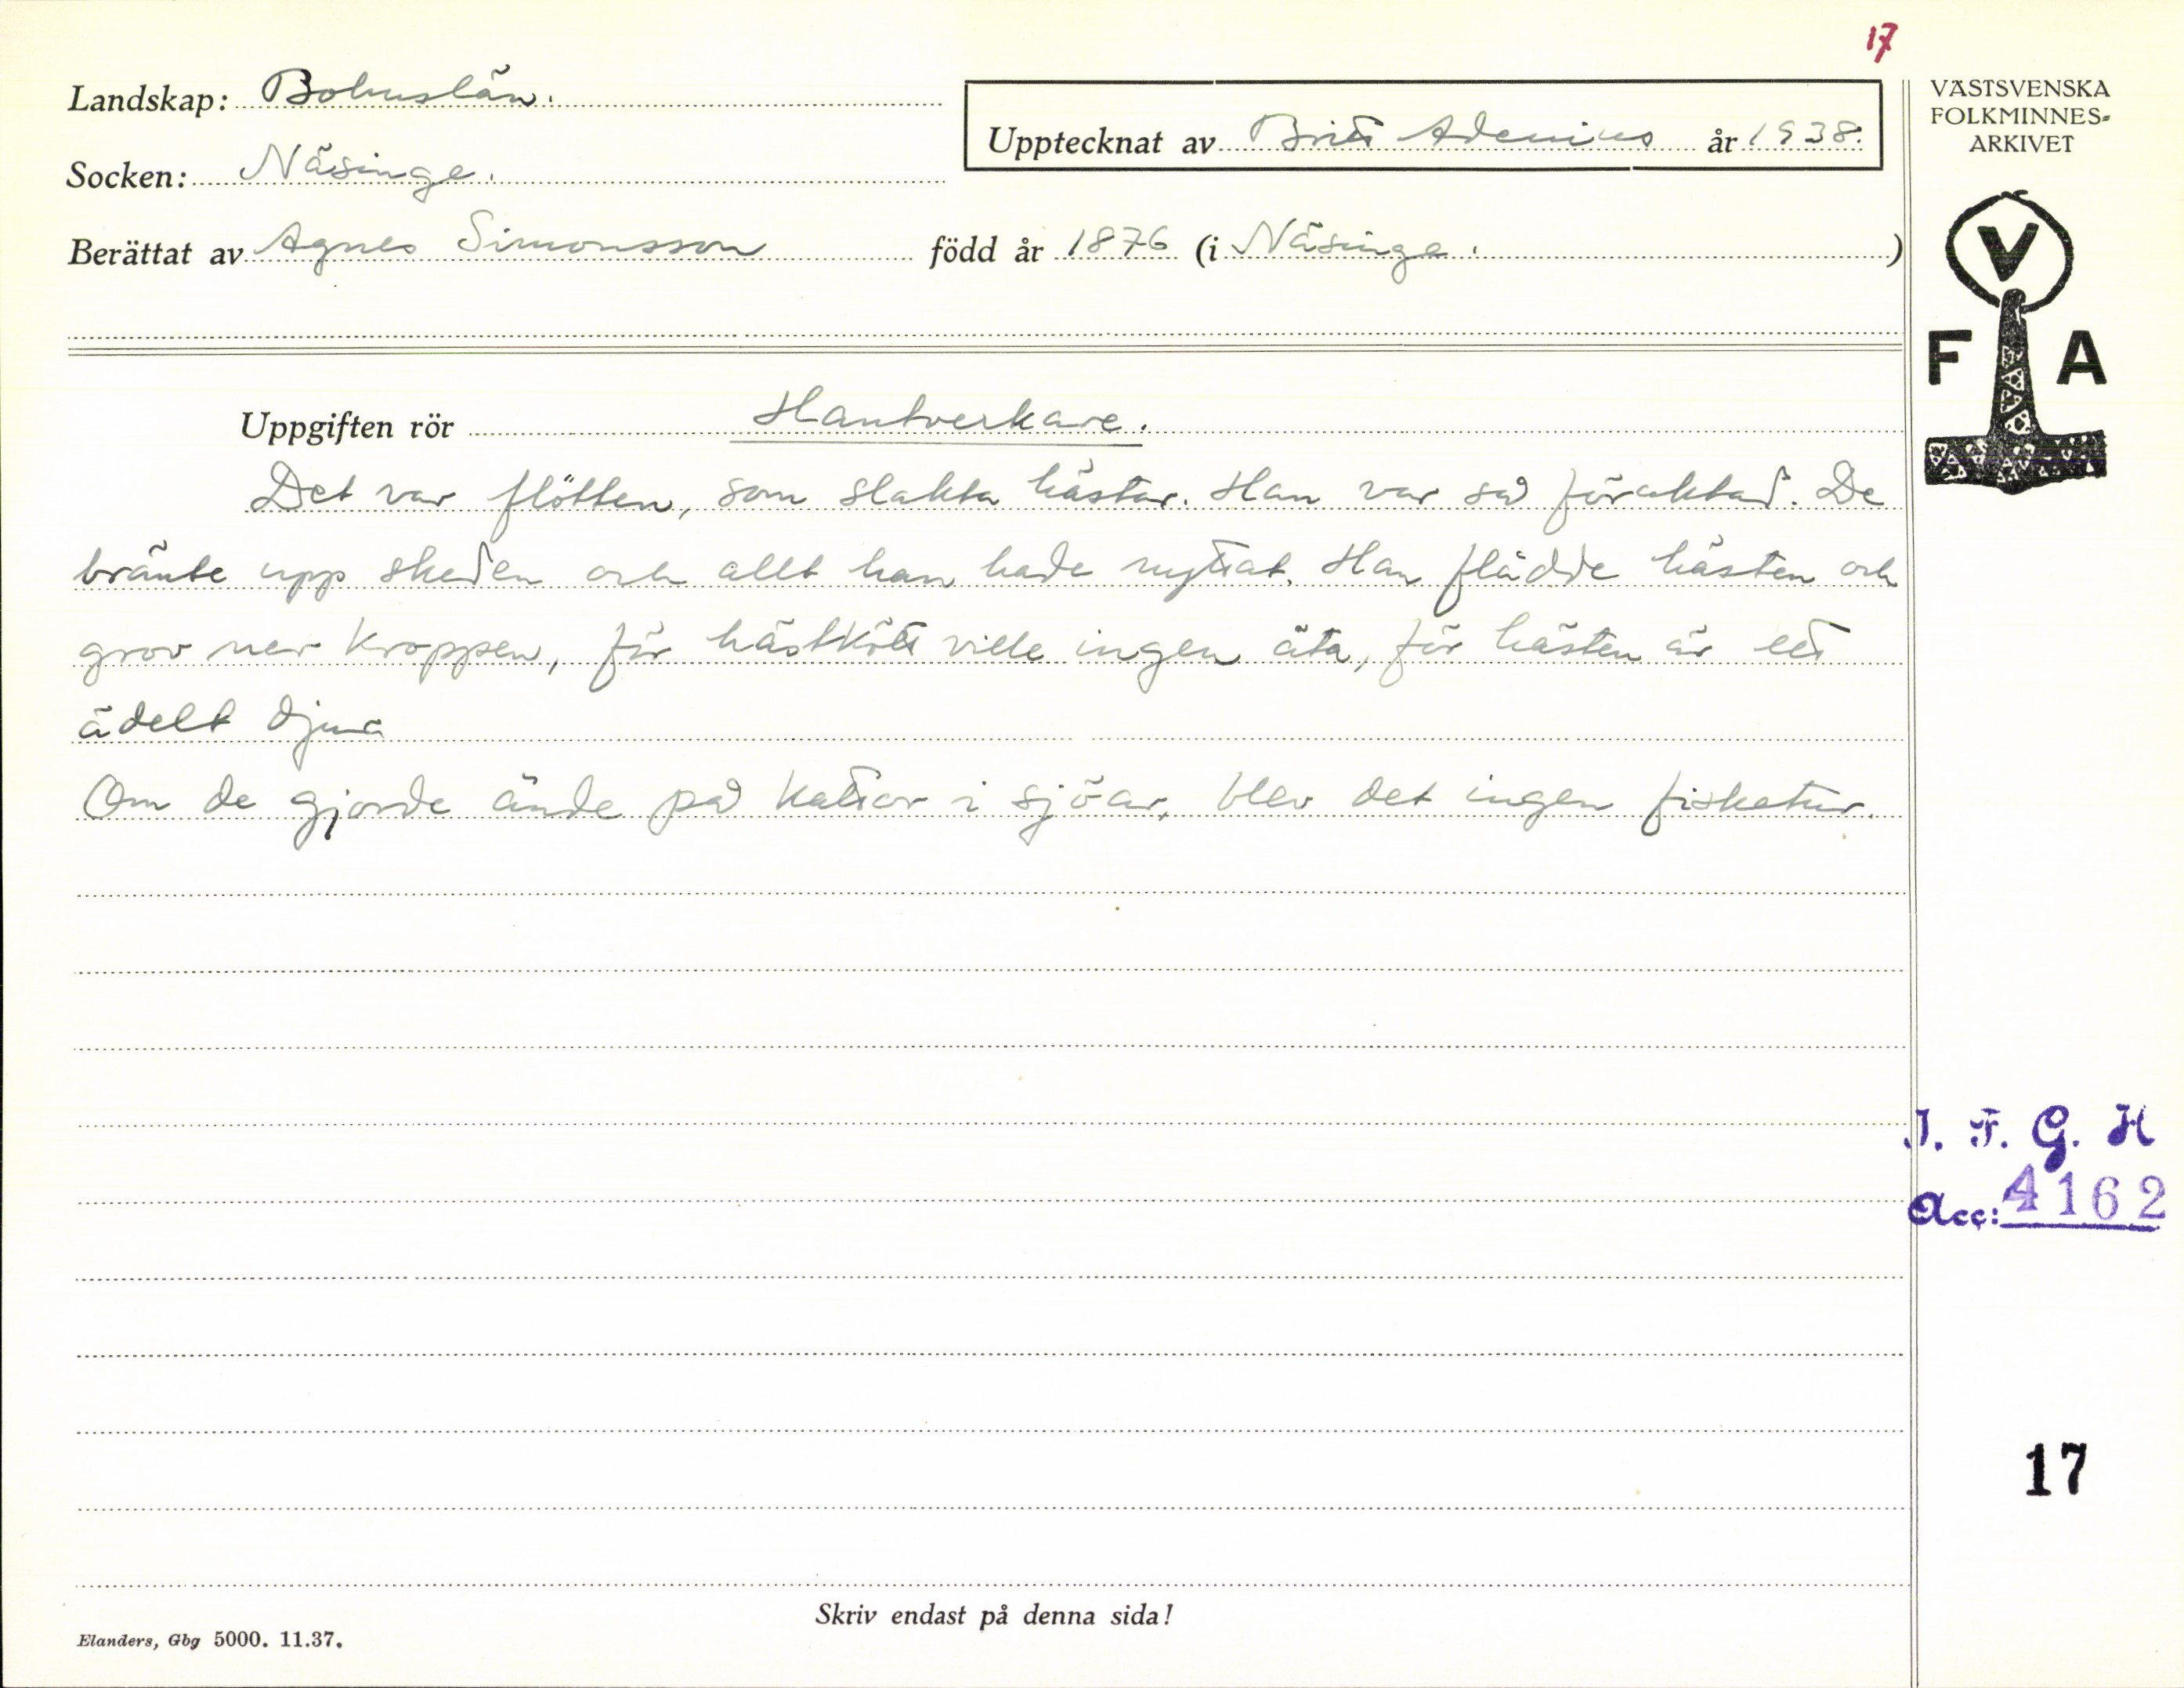 17
Landskap: Bohuslän.
Upptecknat av Britt Adenius år 1938.
Socken: Näsinge.
Berättat av Agnes Simonsson född år 1876 (i Näsinge.)
VÄSTSVENSKA
FOLKMINNES-
ARKIVET
V
F A
Uppgiften rör Hantverkare.
Det var flötten, som slakta hästar. Han var så föraktad. De
bränte upp skeden och allt han hade nyttat. Han flådde hästen och
grov ner kroppen, för hästkött ville ingen äta, för hästen är ett
ädelt djur
Om de gjorde ände på kattor i sjöar, blev det ingen fisketur.
I. F. G. H
Acc: 4162
17
Skriv endast på denna sida!
Elanders, Gbg 5000. 11.37.